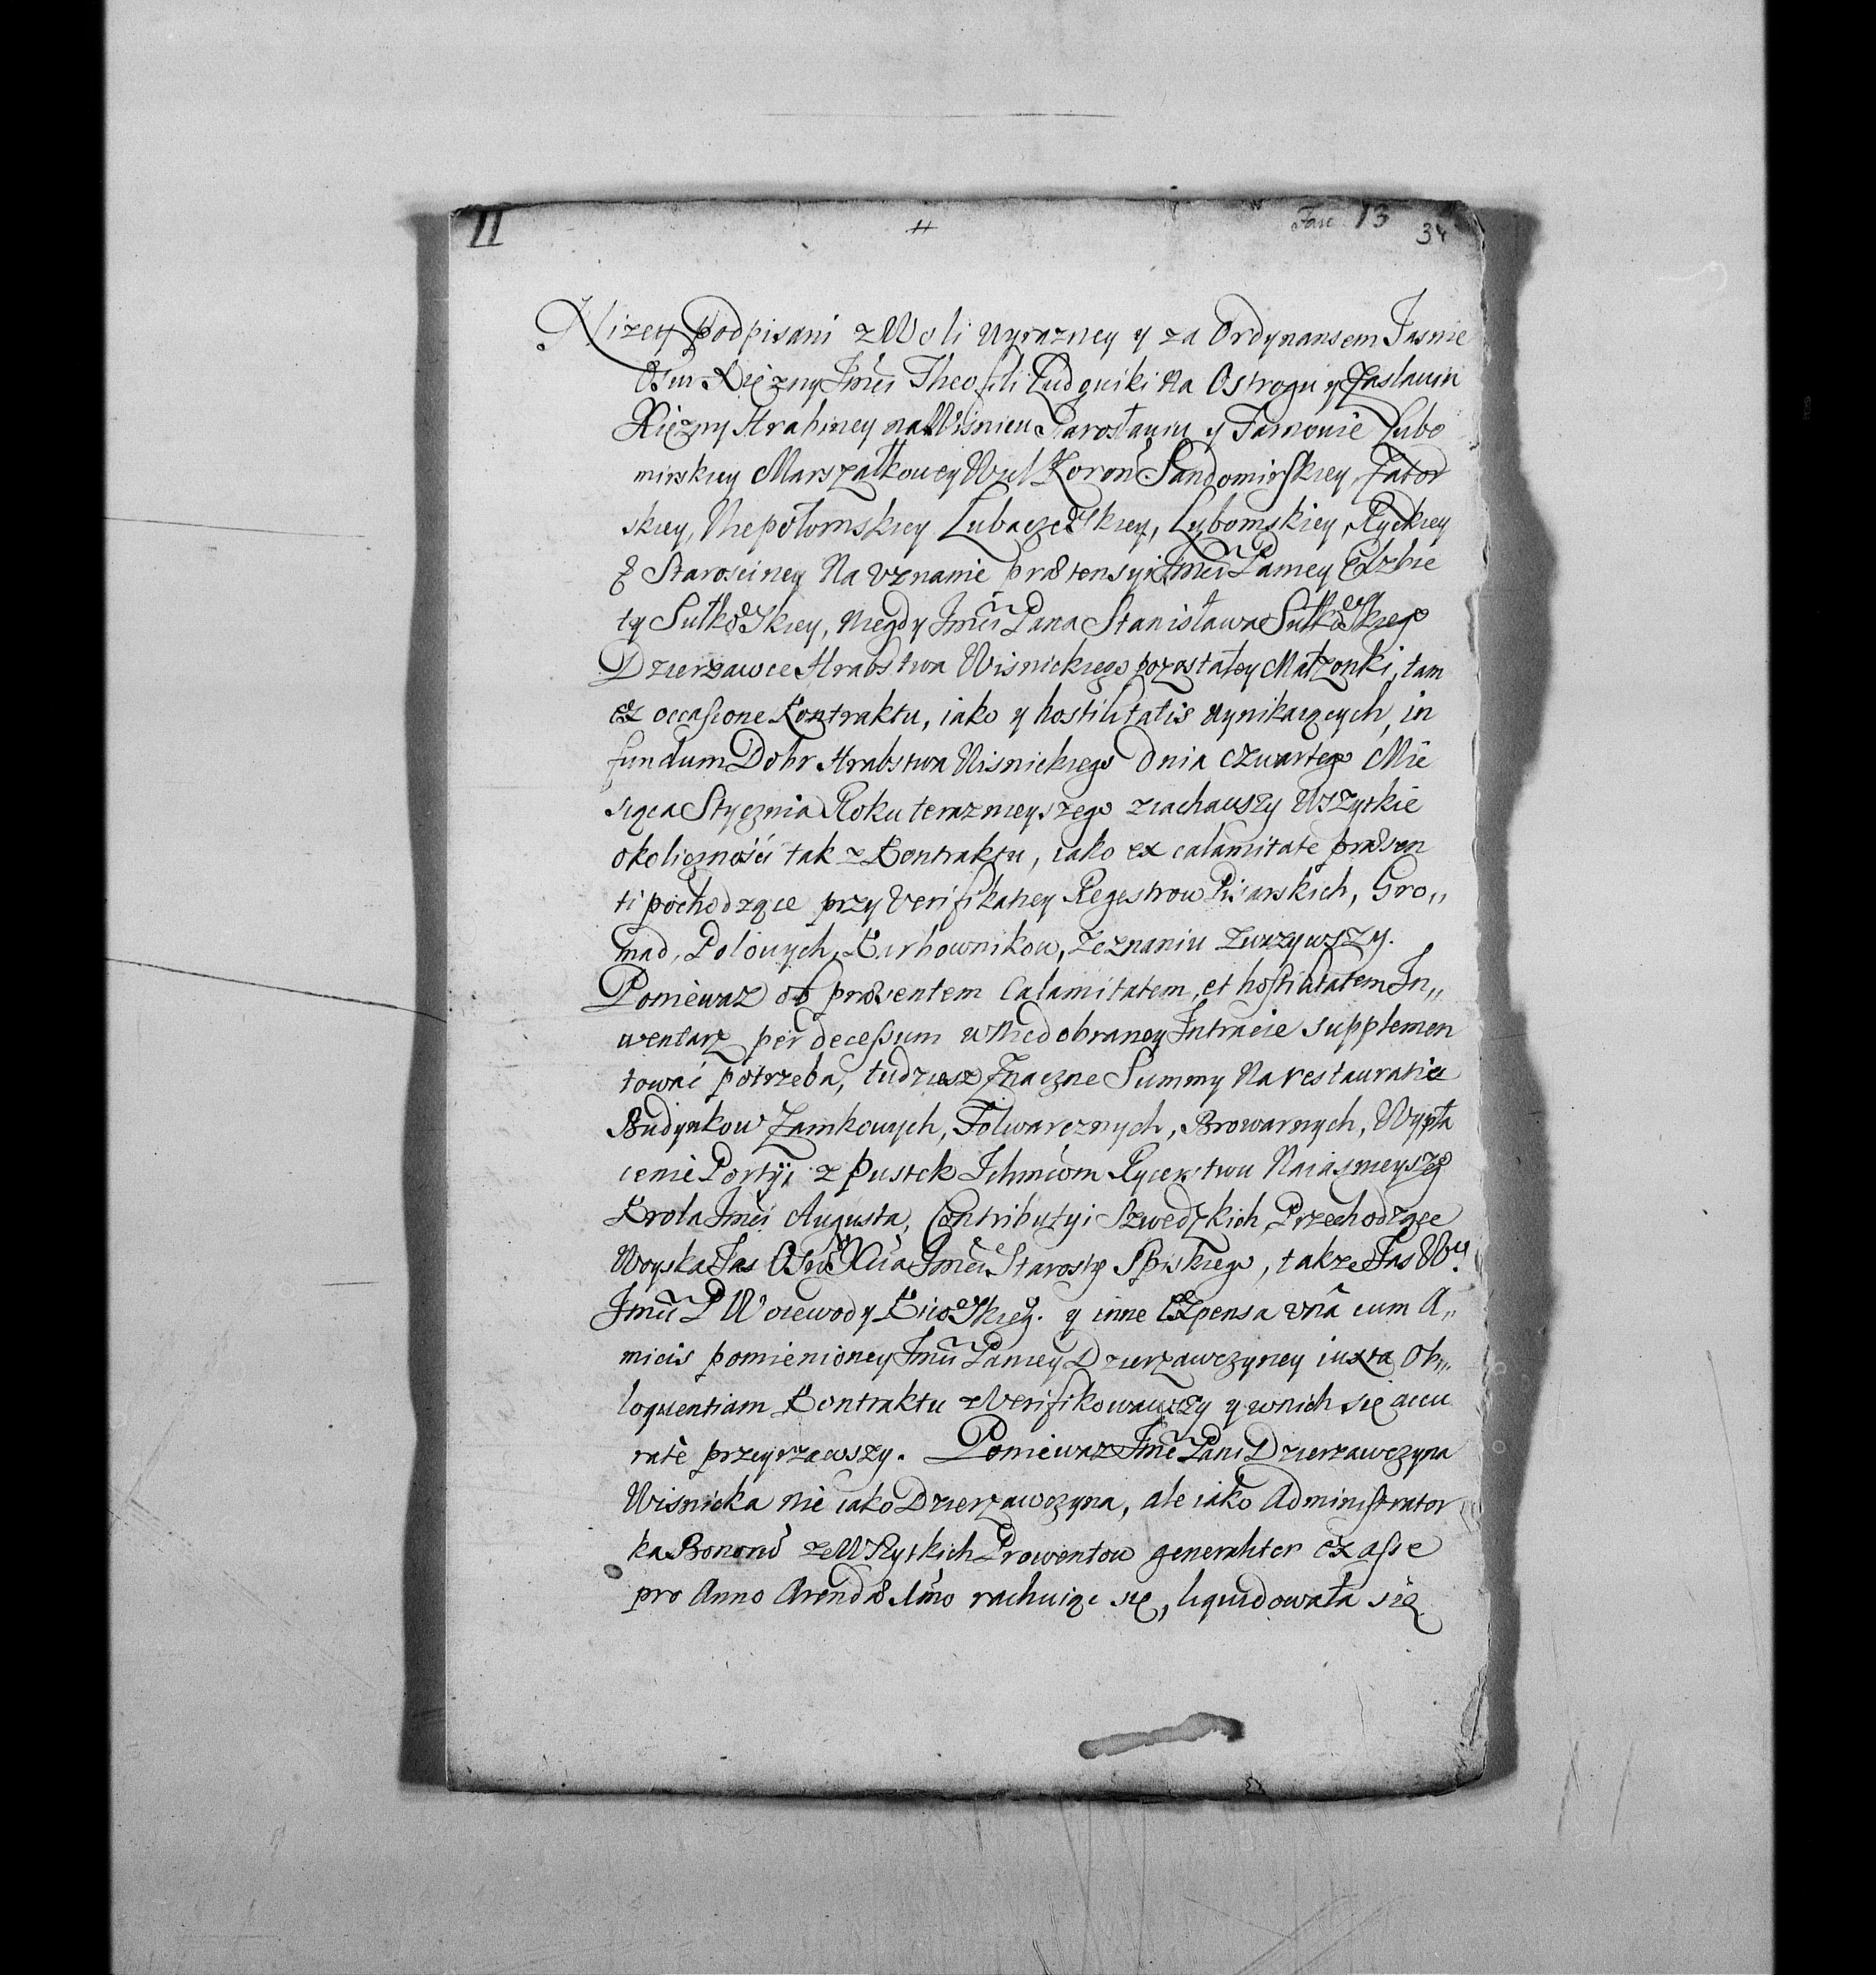 II
Fasc 13
34
Nizey Podpisani z Woli wyrazney y za Ordynansem Jasnie
Osw Xięzny Jmci Theofili Ludwiki na Ostrogu y Zaslawiu
Xięzny Hrabiney na Wisniczu Jarosławiu y Tarnowie Lubo
mirskiey Marszałkowey Wiel Koron Sandomirskiey, Zator
skiey, Niepołomskiey Lubaczewskiey, Lybomskiey, Ryckiey
& Starosciney Na Uznanie prætensyi Jmci Paniey Elzbie
ty Sułkowskiey, niegdy Jmci Pana Stanisława Sułkowskiego
Dzierzawce Hrabstwa Wisnickiego pozostałey Małzonki, tam
ex occasione Kontraktu, iako y hostilitatis wynikaiących, in
fundum Dobr Hrabstwa Wisnickiego Dnia czwartego Mie
siąca Stycznia Roku teraznieyszego ziachawszy Wszytkie
okolicznosci tak z Kontraktu, iako ex calamitate præsen
ti pochodzące przy Verifikatiey Regestrow Pisarskich, Gro„
mad, Polowych, Karbownikow, Zeznaniu zwazywszy.
Poniewaz ob præsentem Calamitatem, et hostilitatem In„
wentarz per decessum w niedobraney Intracie supplemen
towac potrzeba, tudziesz Znaczne Summy Na restauratią
Budynkow Zamkowych, Folwarcznych, Browarnych, Wypła
cenie Portÿi z Pustek Ichmciom Rycerstwu Naiasnieyszeg
Krola Jmci Augusta, Contributyi Szwedzkich, Przechodzące
Woyska Jas Osw Xcia Jmci Starosty Spiskiego, takze Jas Wy
Jmci P Woiewody Kiiowskieg. y inne Expensa una cum A„
micis pomienioney Jmci Paniey Dzierzawczyney iuxta Ob„
loquentiam Kontraktu zVerifikowawszy y wnich się accu
rate przeyrzawszy. Poniewaz Jmc Pani Dzierzawczyna
Wisnicka nie iako Dzierzawczyna, ale iako Administrator
ka Bonorū ze Wszytkich Prowentow generaliter ex asse
pro Anno Arendæ 1mo rachuiąc się, liquidowała się